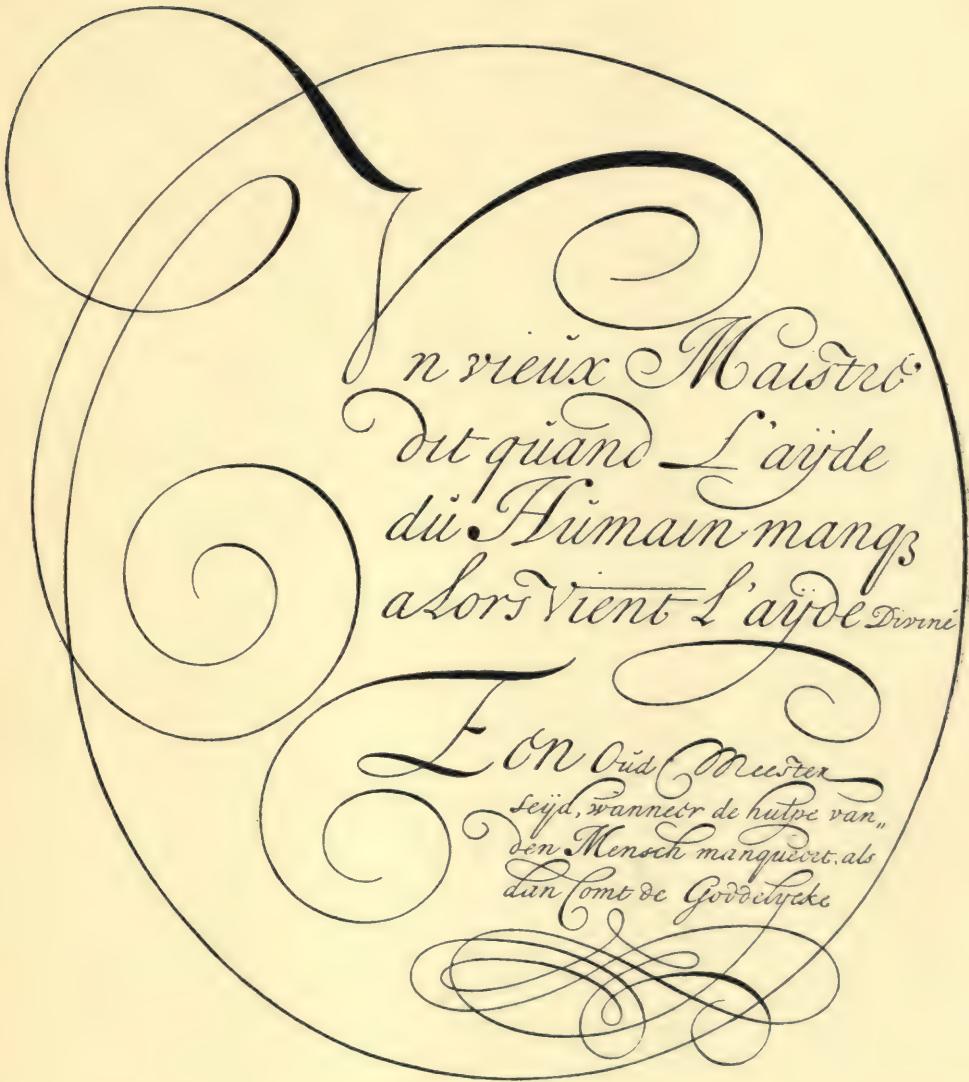 Vn vieŭx Maistre
dit qŭand L'aÿde
dŭ Hŭmain manqȝ
alors vient L'aÿde Divine
Een Oŭd Meester
seijd, wanneer de hulpe van„
den Mensch manqueert, als
dan Comt de Goddelijcke